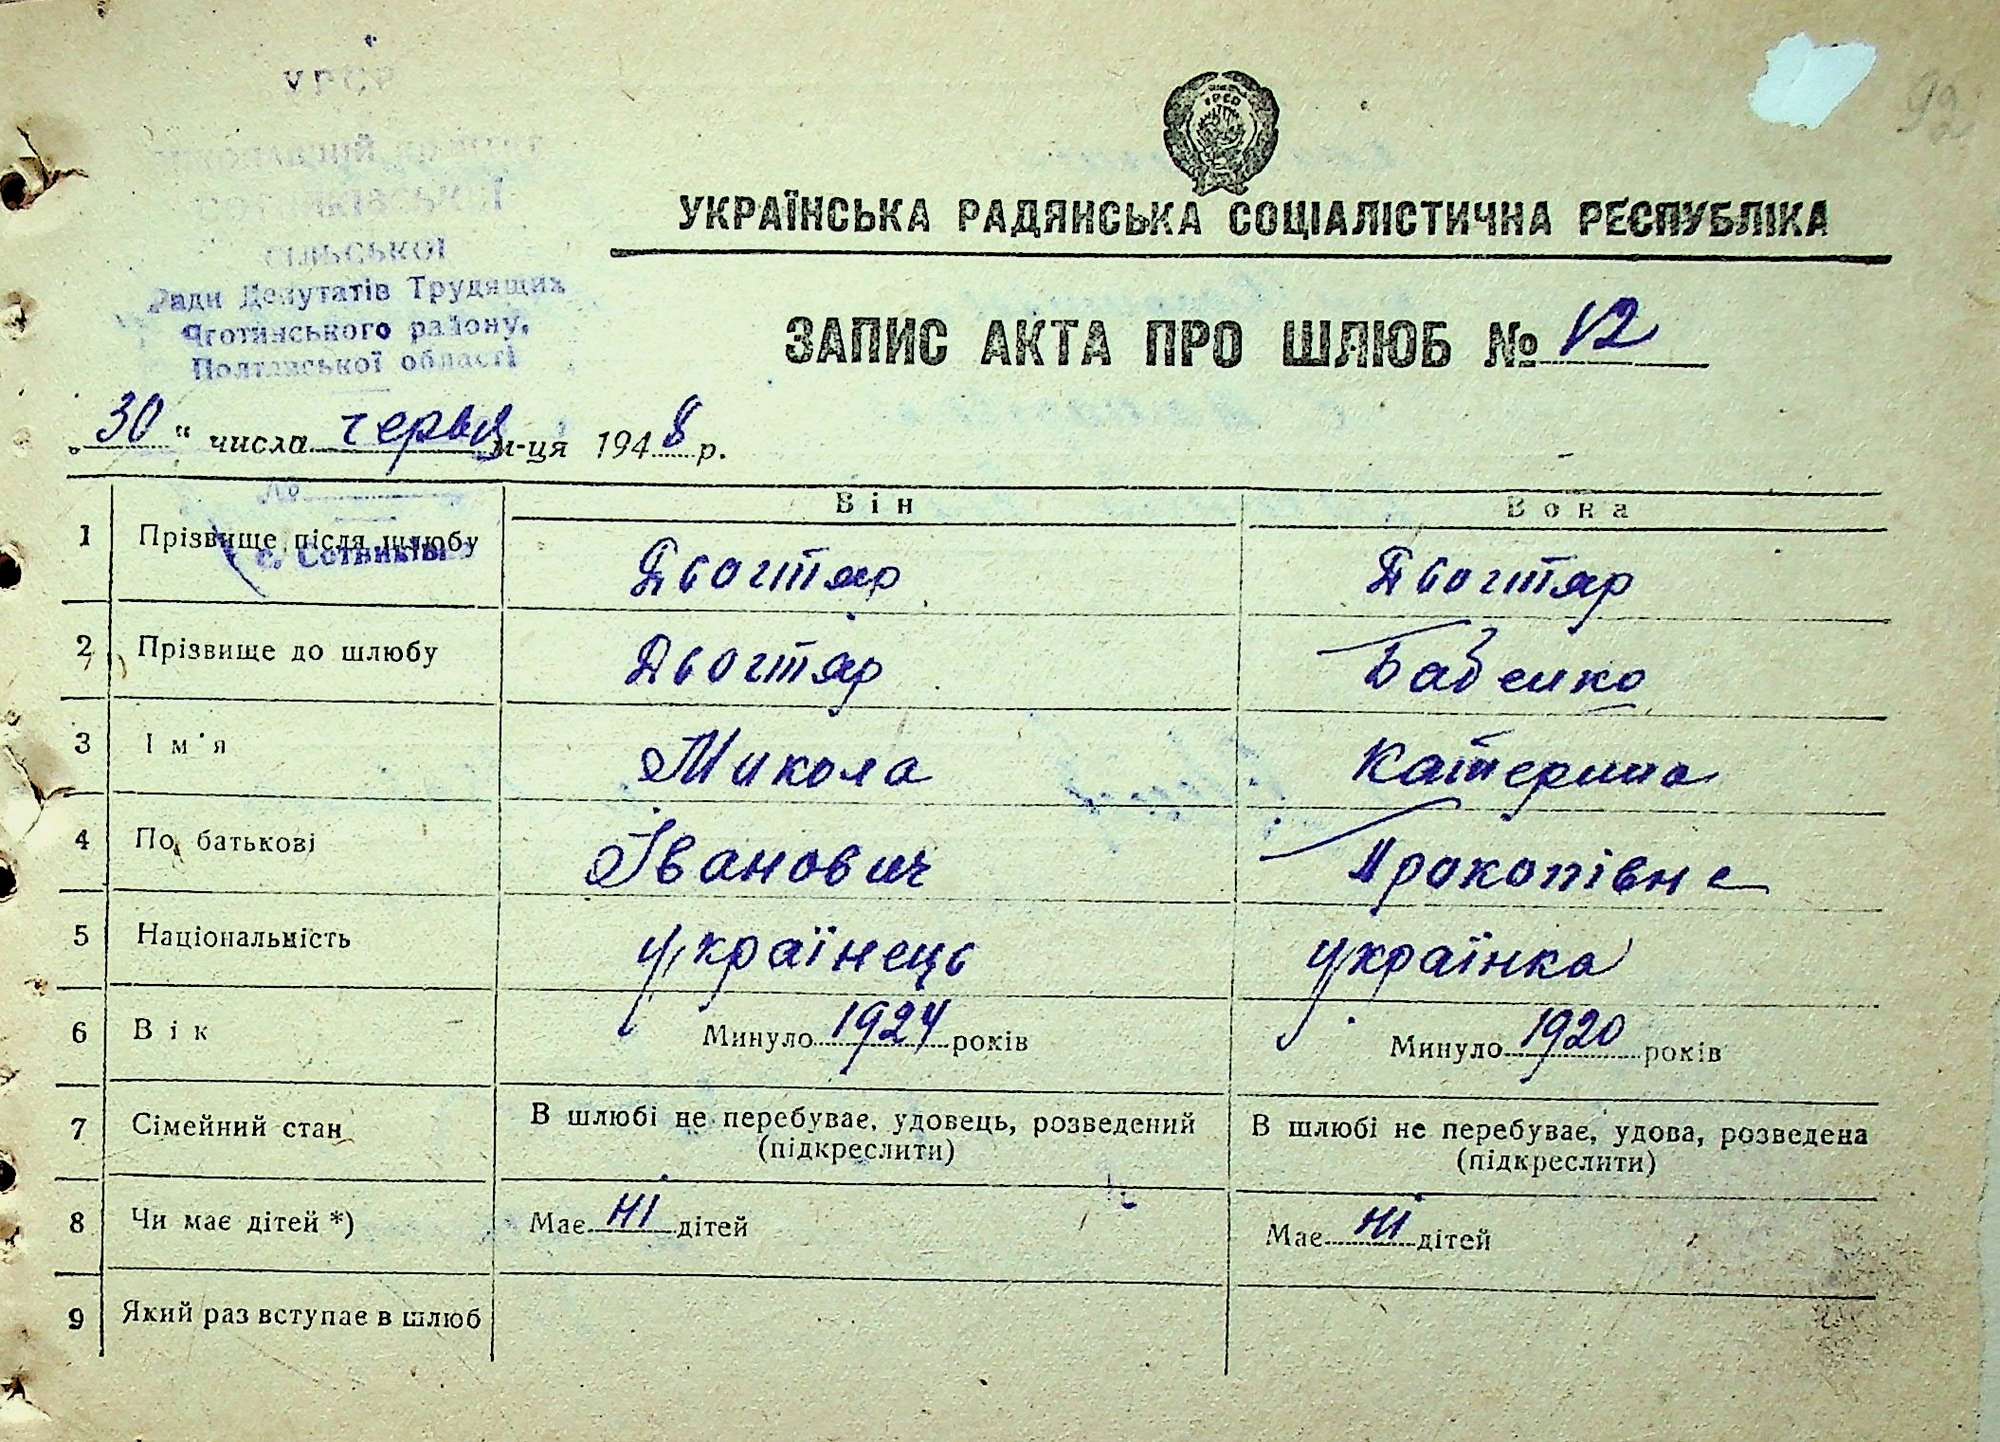 УРСР
СІЛЬСЬКОЇ
Ради Депутатів Трудящих
Яготинського району,
Полтавської області
№
с. Сотників
92
УРСР
УКРАЇНСЬКА РАДЯНСЬКА СОЦІАЛІСТИЧНА РЕСПУБЛІКА
ЗАПИС АКТА ПРО ШЛЮБ № 12
„30“ числа червня м-ця 1948 р.
Він Вона
1 Прізвище після шлюбу Дьогтяр Дьогтяр
2 Прізвище до шлюбу Дьогтяр Бабенко
3 Ім'я Микола Катерина
4 По батькові Іванович Прокопівне
5 Національність українець українка
6 Вік Минуло 1924 років Минуло 1920 років
7 Сімейний стан В шлюбі не перебуває, удовець, розведений (підкреслити) В шлюбі не перебуває, удова, розведена (підкреслити)
8 Чи має дітей *) Має ні дітей Має ні дітей
9 Який раз вступає в шлюб